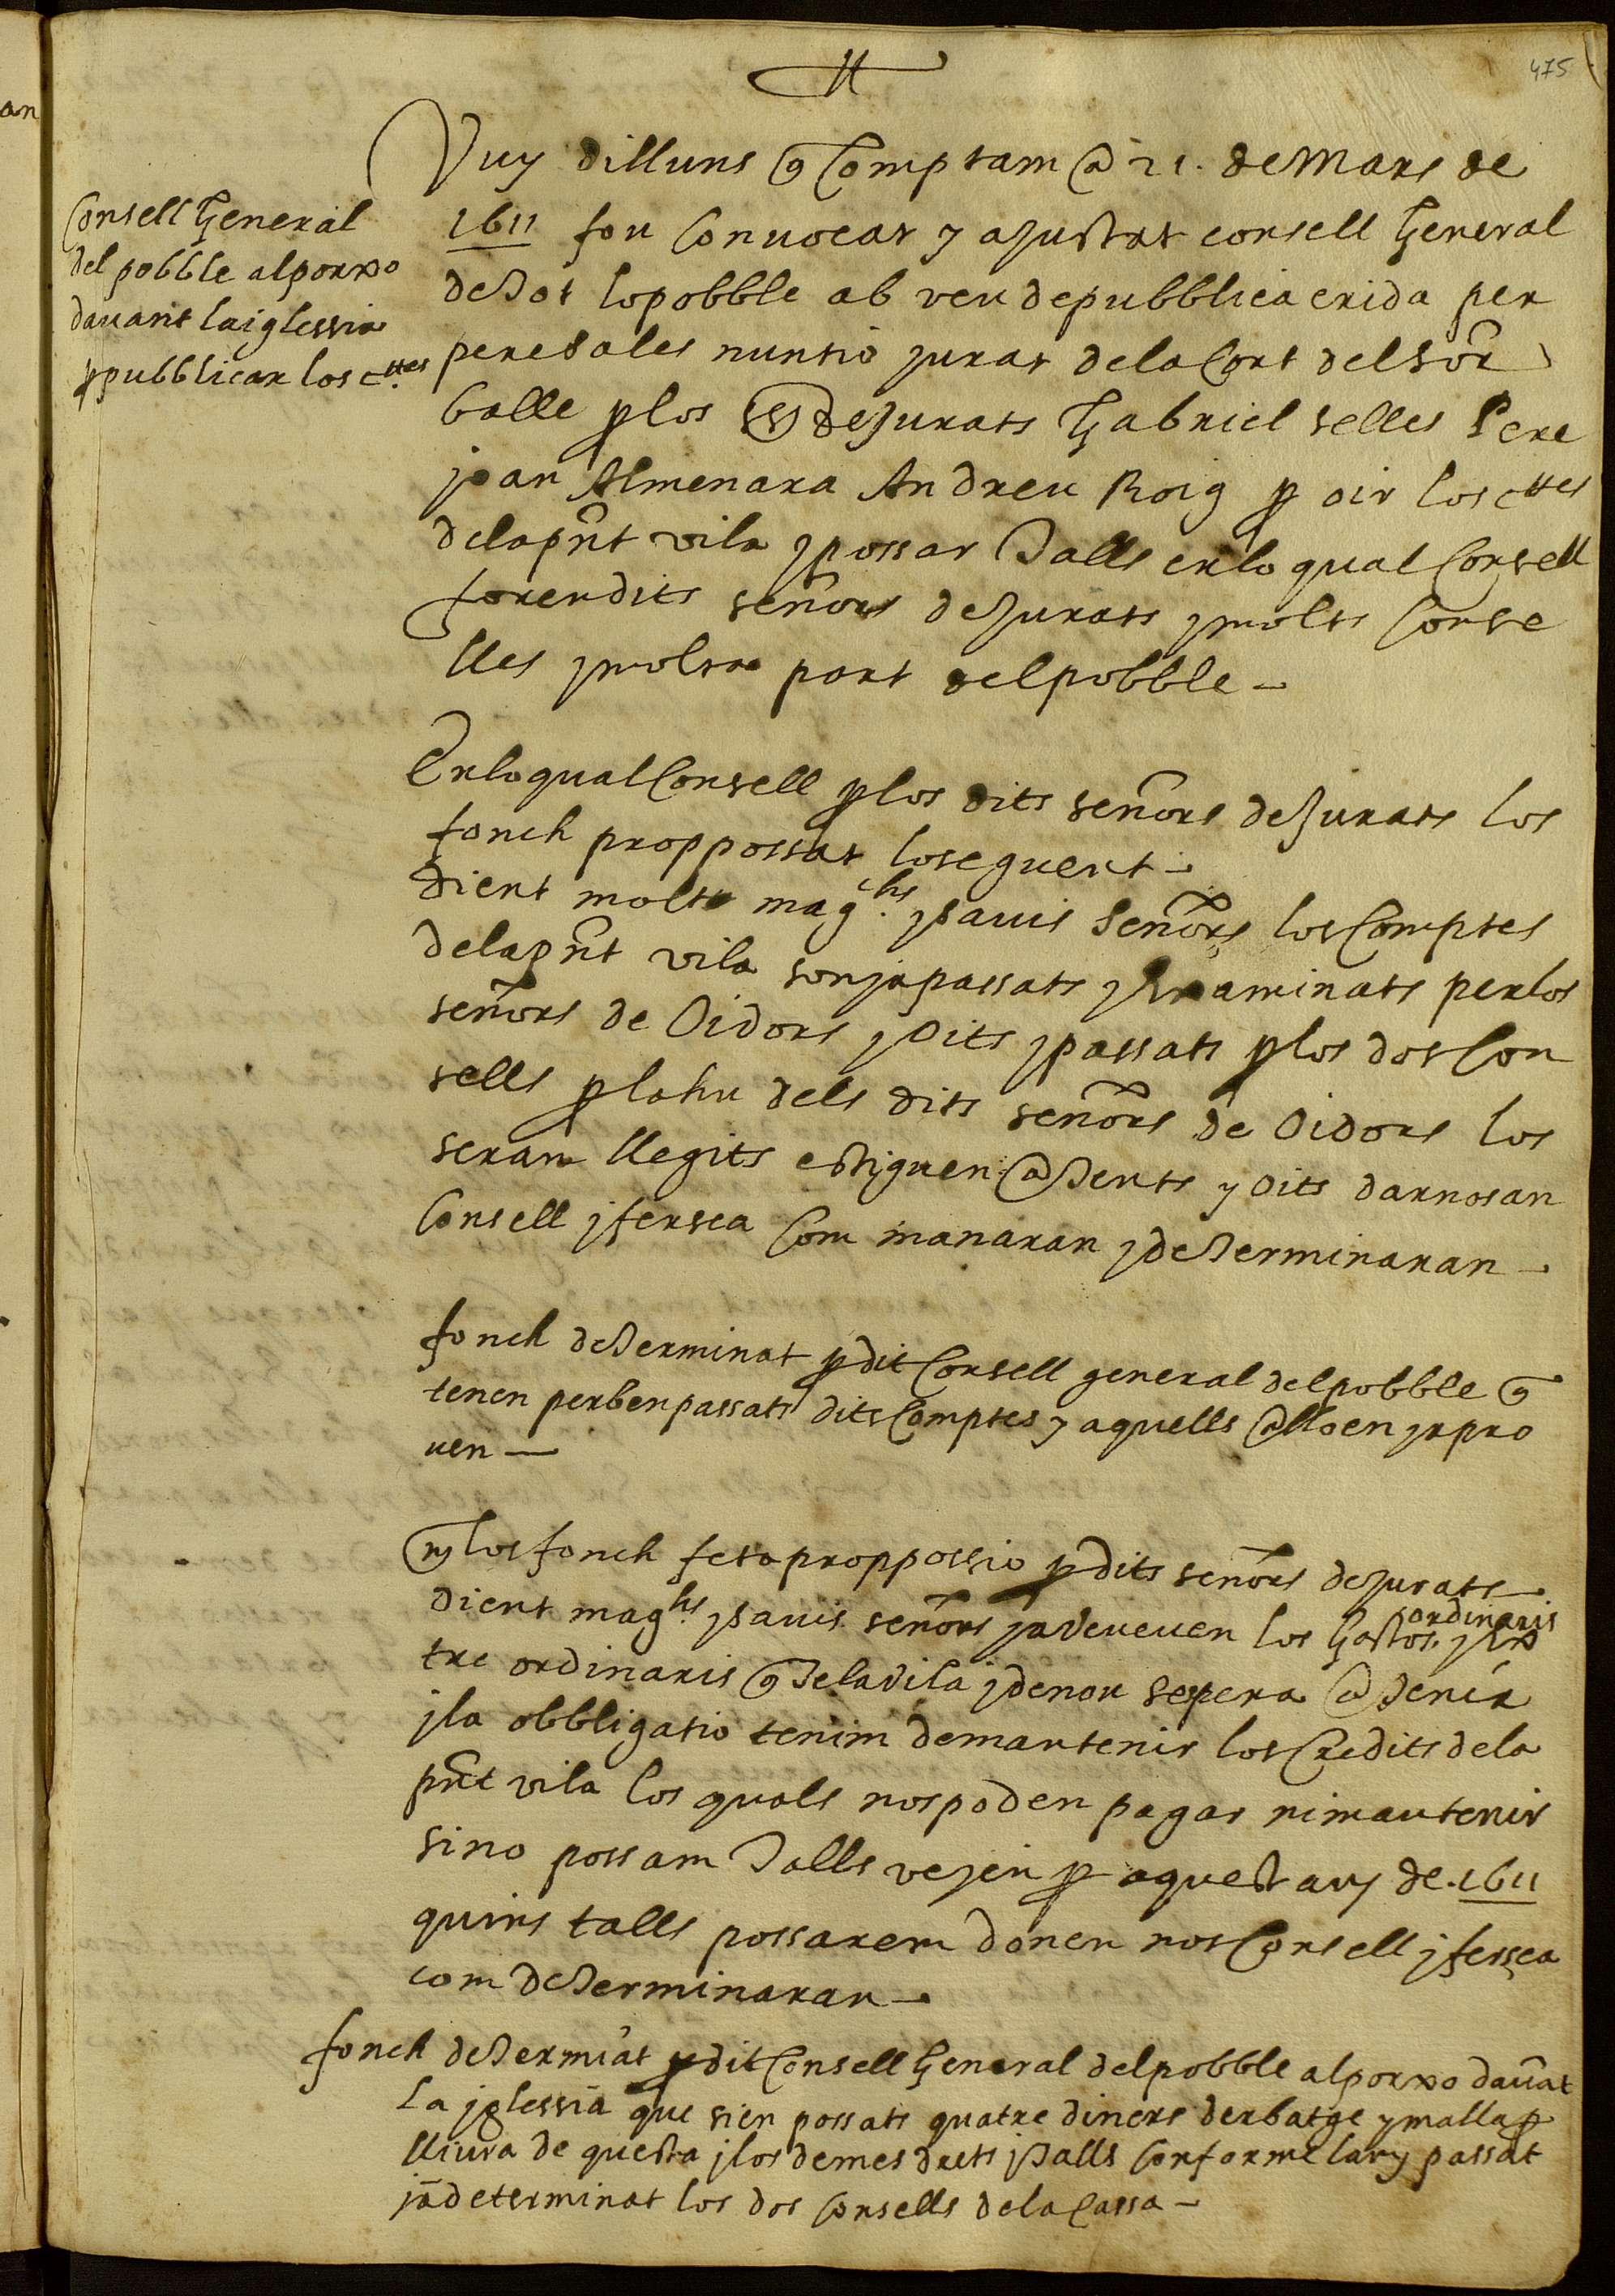 475
Vuy dilluns q Comptam a 21. de Mars de
1611 fou Convocat y ajustat consell General
de tot lo pobble ab veu de pubblica crida per
pere sales nuntio jurat de la Cort del Sor
Balle p los SS de Jurats Gabriel selles Pere
joan Almenara Andreu Roig p oir los cttes
de la pnt vila y possar talls en lo qual Consell
foren dits señors de Jurats y molts Conse
lles y molta part del pobble
Consell General
del pobble al porxo
davant la iglessia
p pubblicar los cttes
En lo qual Consell p los dits señors de Jurats los
fonch proppossat lo seguent
Dient molt magchs y savis Señors los Comptes
de la pnt vila son ja passats y Examinats per los
señors de Oidors y Oits y passats p los dos Con
sells p la hu dels dits señors de Oidors los
seran llegits estiguen atents y oits darnos an
Consell y fersea Com manaran y determinaran
fonch determinat p dit Consell general del pobble q
tenen per ben passats dits Comptes y aquells alloen y apro
ven
los fonch feta proppossio p dits señors de Jurats
Dient maghs y savis señors ja veuen los Gastos ordinaris y Ex
tre ordinaris q te la vila y de nou sespera a tenir
y la obbligatio tenim de mantenir los Credits de la
pnt vila los quals nos poden pagar ni mantenir
sino possam talls vejen p aquest any de 1611
quins talls possarem donen nos Consell y fersea
com determinaran
fonch determiat p dit Consell General del pobble al porxo davat
La jglessia que sien possats quatre diners derbatge y malla p
lliura de questa y los demes drets y talls Conforme lany passat
ja determinat los dos Consells de la Cassa